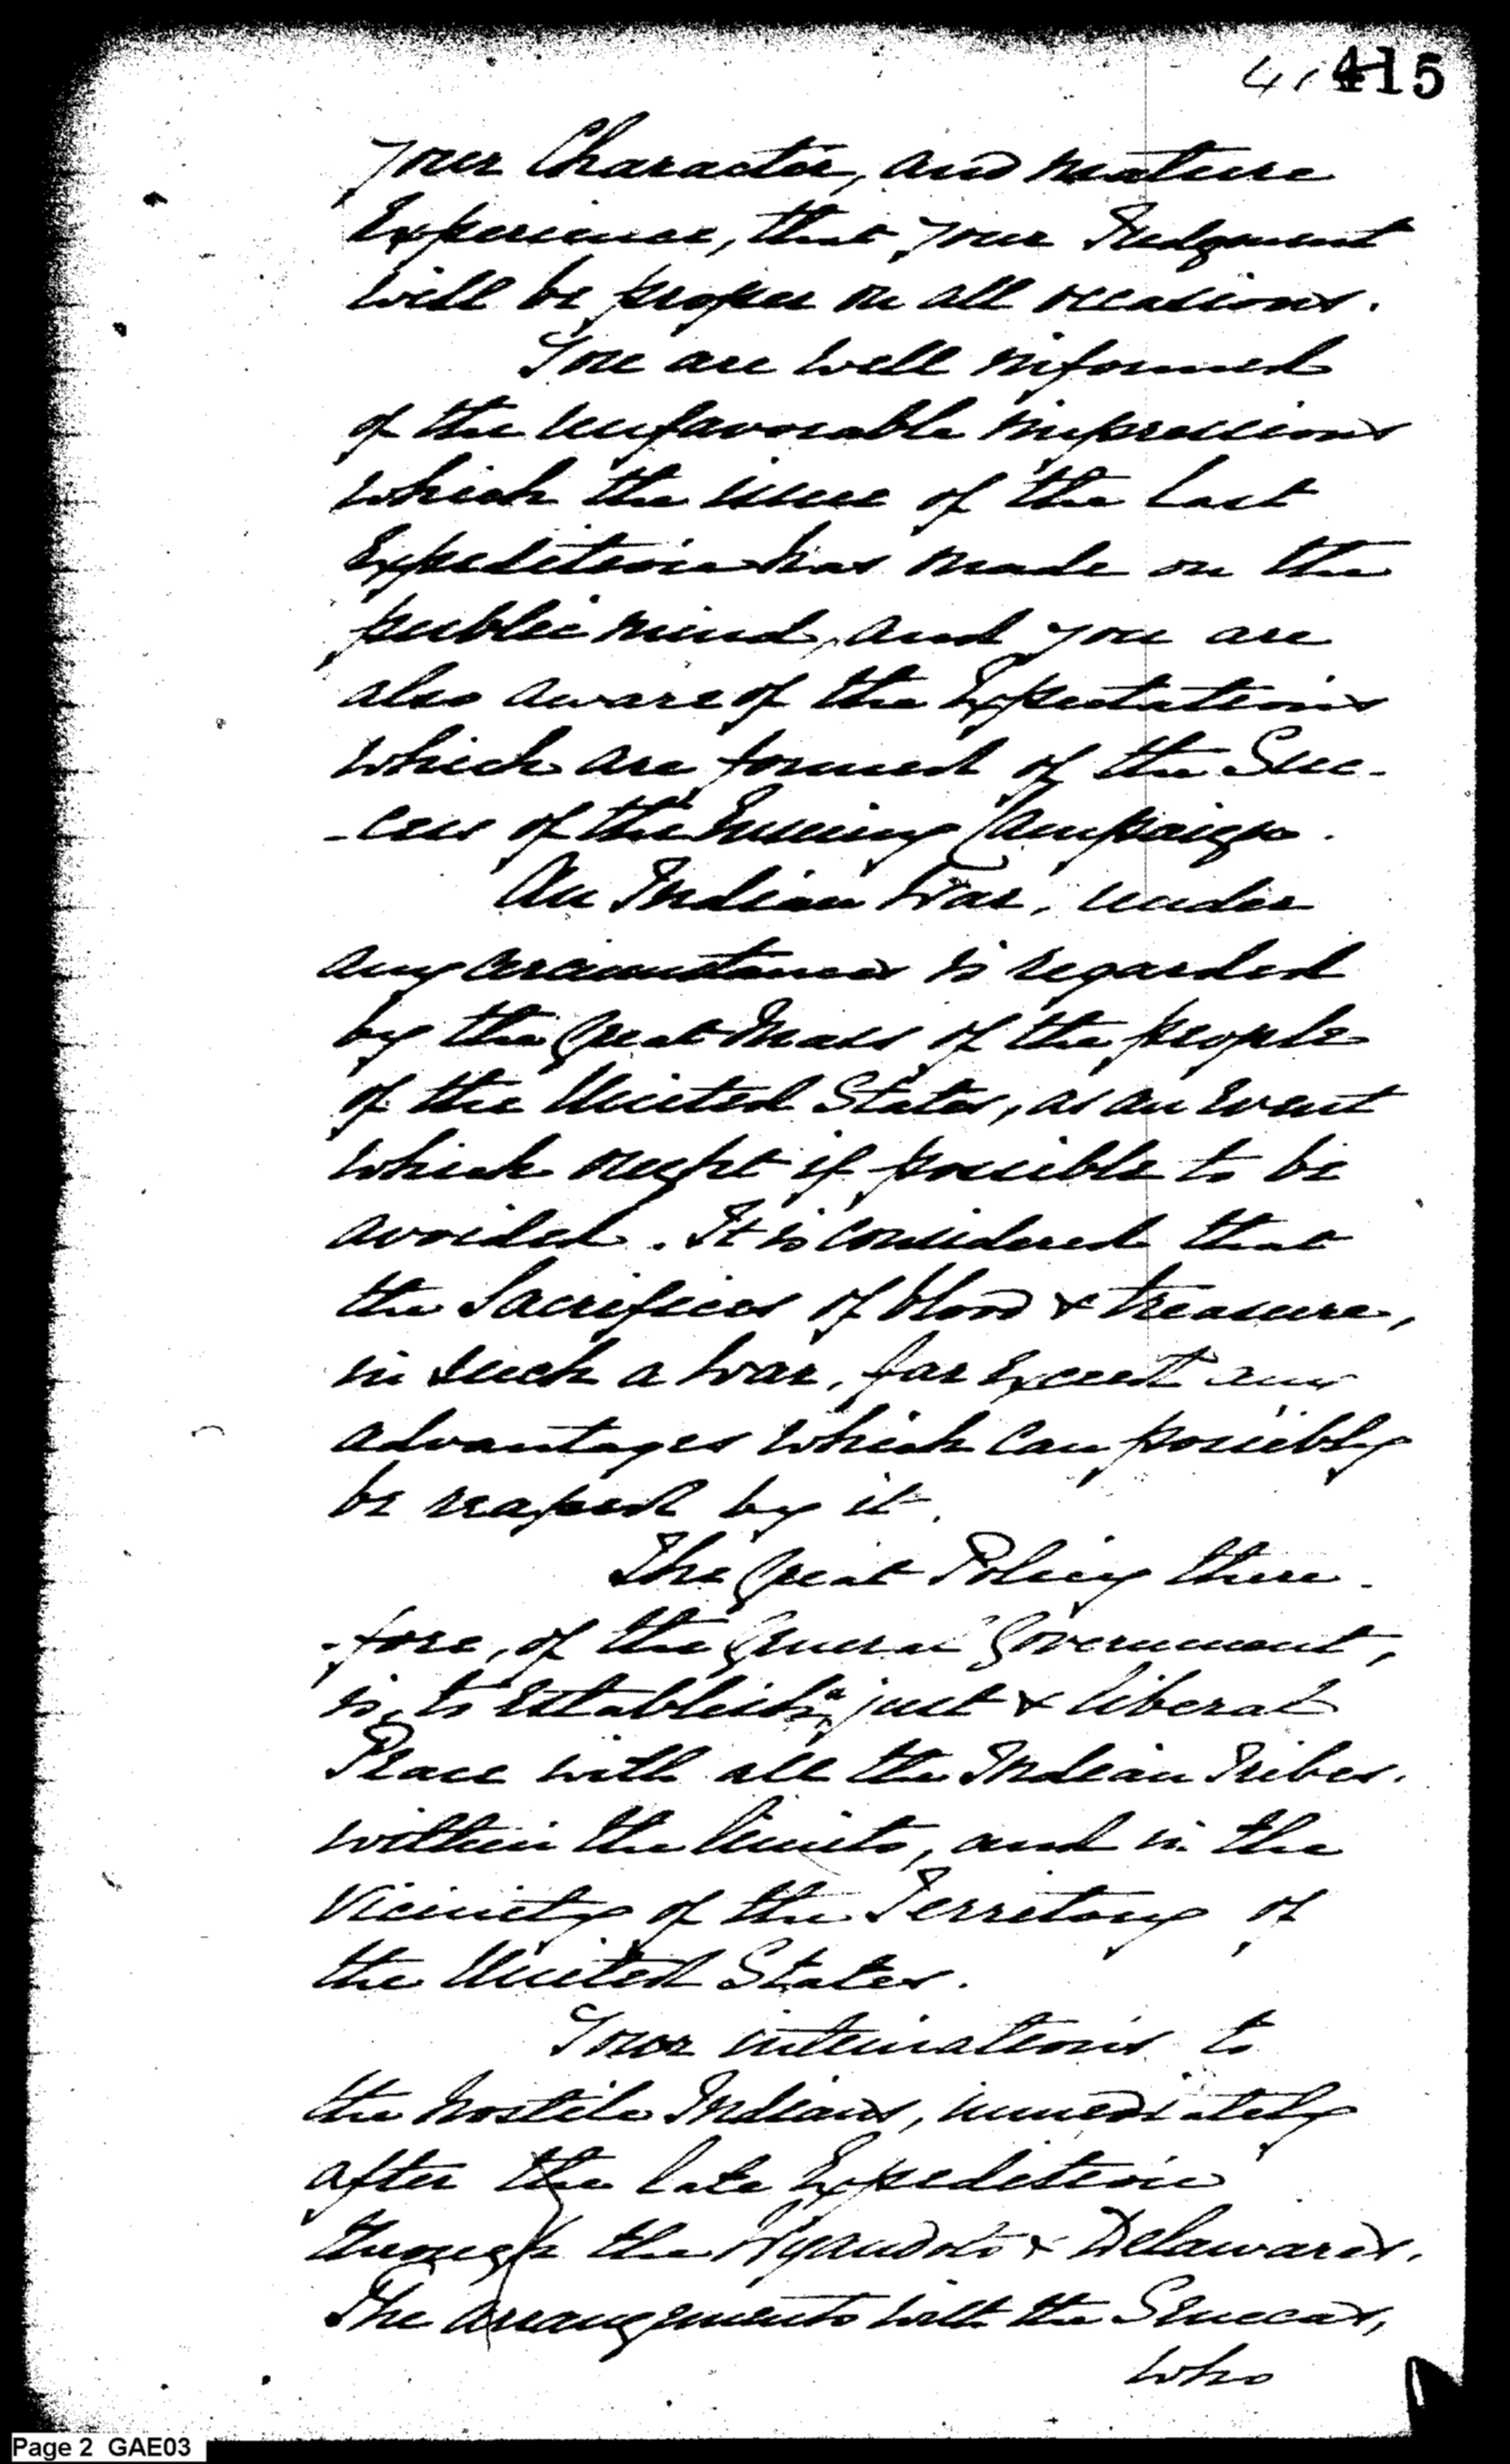 41 415
your Character, and mature
Experience, that your Judgment
will be proper on all occasions.
You are well informed
of the unfavorable impressions
which the issue of the last
Expedition has made on the
public mind, and you are
also aware of the Expectations
which are formed of the Suc-
-cess of the Ensuing Campaign.
An Indian War, under
any circumstances is regarded
by the Great Mass of the people
of the United States, as an event
which ought if possible to be
avoided. It is considered that
the Sacrifices of blood & treasure,
in such a War, far exceed any
advantages which can possibly
be reaped by it.
The Great Policy there-
-fore, of the General Government,
is to establish a just & liberal
Peace with all the Indian Tribes.
within the limits, and in the
Vicinity of the Territory of
the United States.
Your intimations to
the hostile Indians, immediately
after the late Expedition
through the Wyandots & Delawares.
The arrangements with the Senecas,
who
Page 2 GAE03